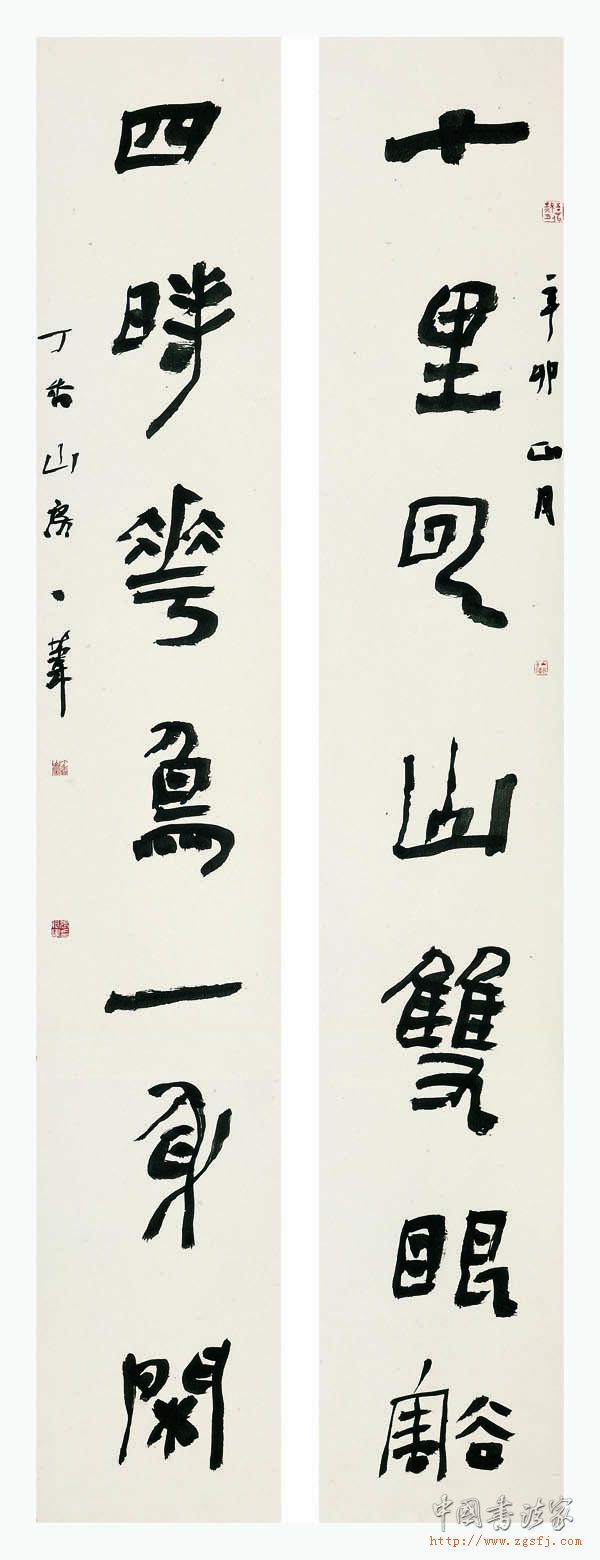 十里山雙眼豁
辛卯正月
四時華鳥一身閑
丁香山房一葦
中國書法家
http://www.zgsfj.com